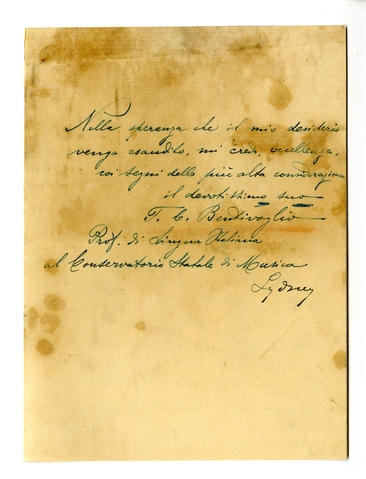 Nella speranza che il mio desiderio
venga esaudito, mi creda eccellenza,
coi segni della più alta considerazione
il devotissimo suo
T. C. Bentivoglio
Prof. di Lingua Italiana
al Conservatorio Statale di Musica
Sydney